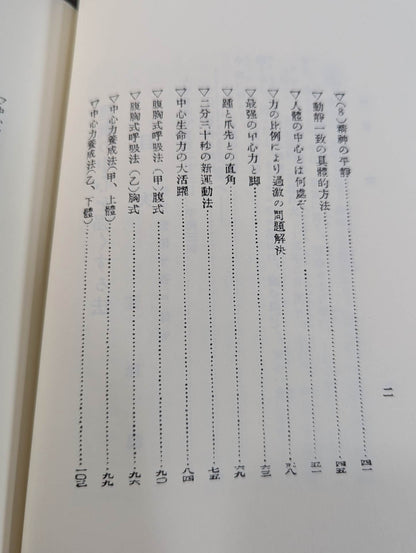 ▽(8)精神の平靜…………四一
▽動靜一致の具體的方法…………四五
▽人體の中心とは何處ぞ…………五一
▽力の比例により過激の問題解決…………五八
▽最强の中心力と脚…………六三
▽踵と爪先との直角…………六九
▽二分三十秒の新運動法…………七五
▽中心生命力の大活躍…………八四
▽腹胸式呼吸法(甲)腹式…………九〇
▽腹胸式呼吸法(乙)胸式…………九六
▽中心力養成法(甲、上體)…………九九
▽中心力養成法(乙、下體)…………一〇二
二